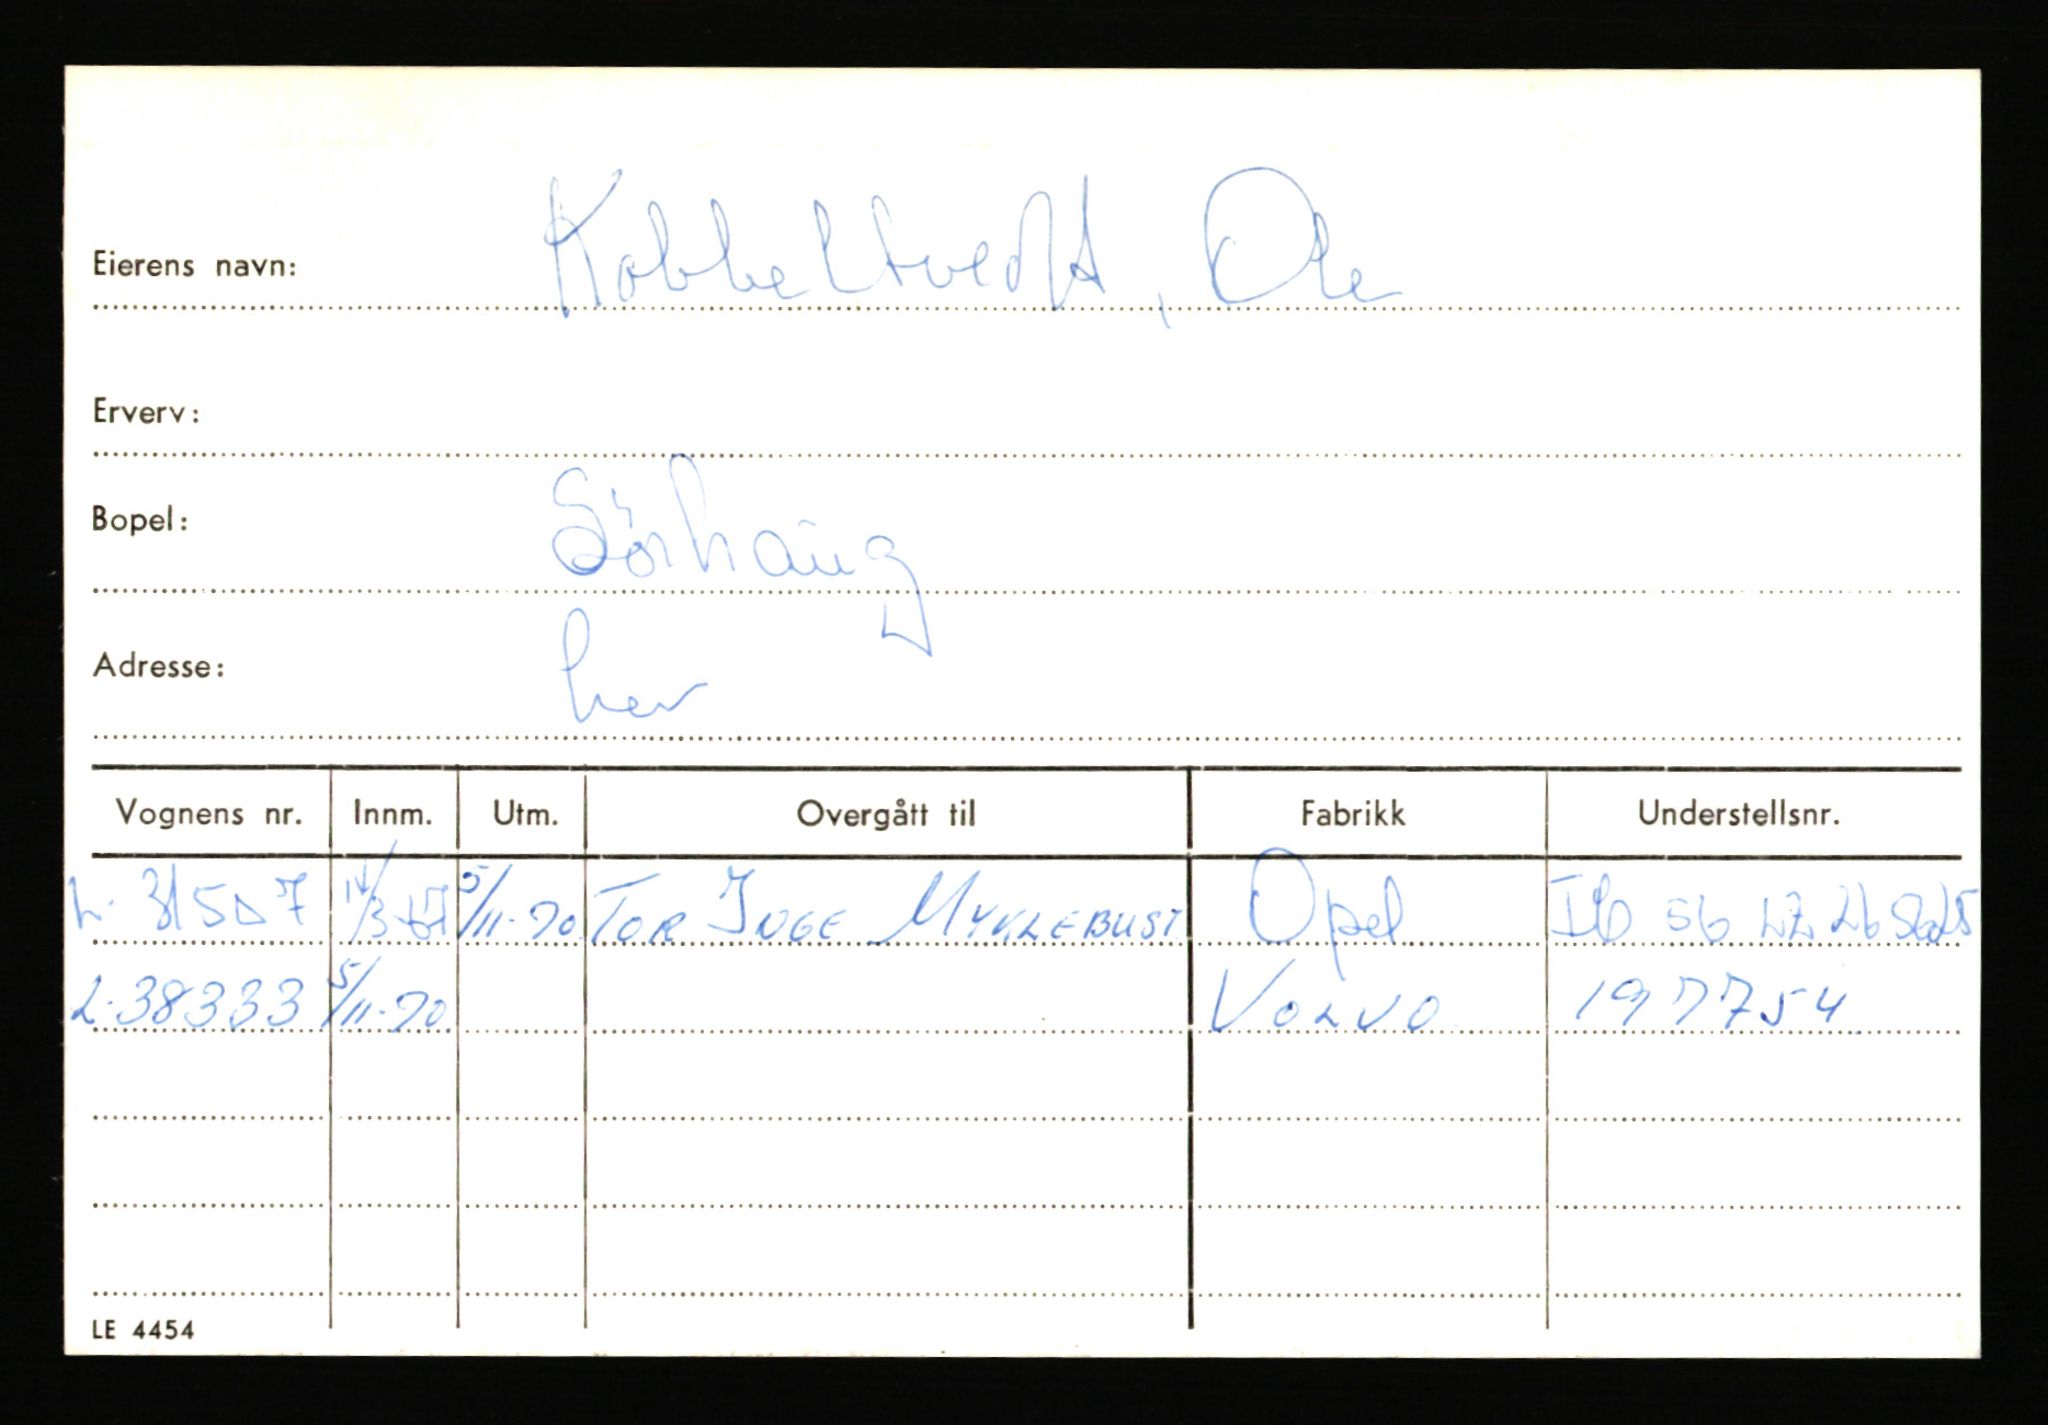 Eierens navn: Kobbeltvedt, Ole
Erverv:
Bopel: Sörhaug
Adresse: her
Vognens nr. Innm. Utm. Overgått til Fabrikk Understellsnr.
L. 31507 5/11-70 TOR INGE MYKLEBUST Opel
L-38333 5/11-70 VOLVO 197754
LE 4454